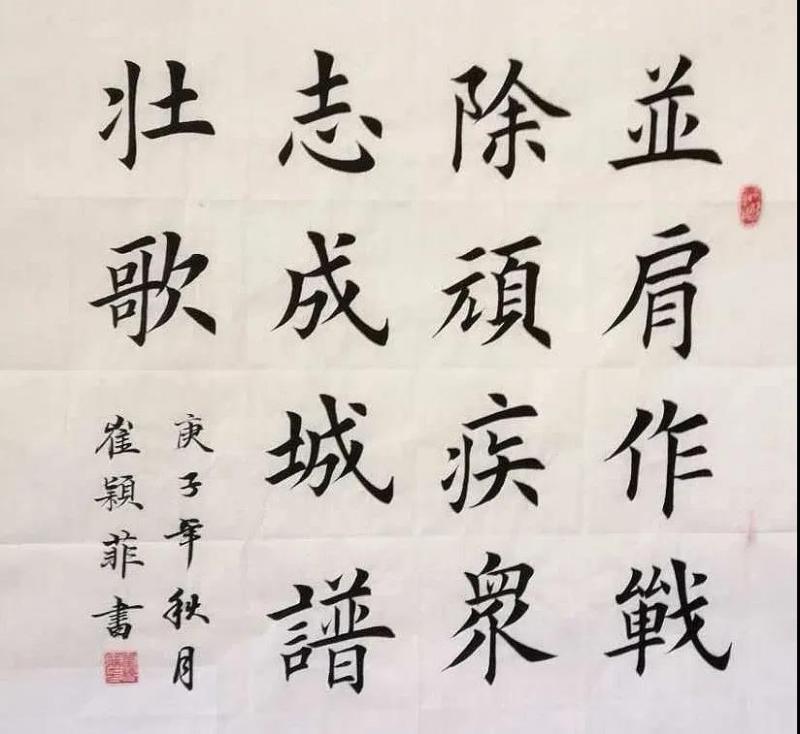 並肩作戰
除頑疾衆
志成城譜
壯歌
庚子年秋月
崔穎菲書